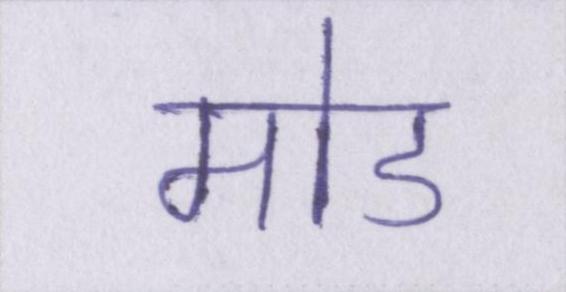 मोड